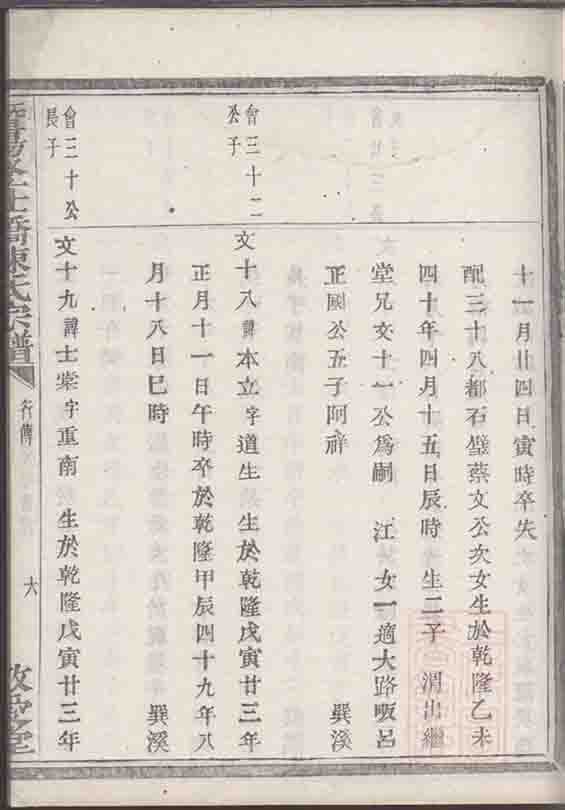 十一月廿四日寅時卒失
配三十八都石璧蔡文公次女生於乾隆乙未
四十年四月十五日辰時 生二子 渭出繼
堂兄文十一公爲嗣 江 女一適大路畈呂
正國公五子阿祥 巽溪
會三十二
公子
文十八諱本立字道生 生於乾隆戊寅廿三年
正月十一日午時卒於乾隆甲辰四十九年八
月十八日巳時 巽溪
會三十公
長子
文十九諱士棠字重南 生於乾隆戊寅廿三年
橋陳氏宗譜 行傳 六